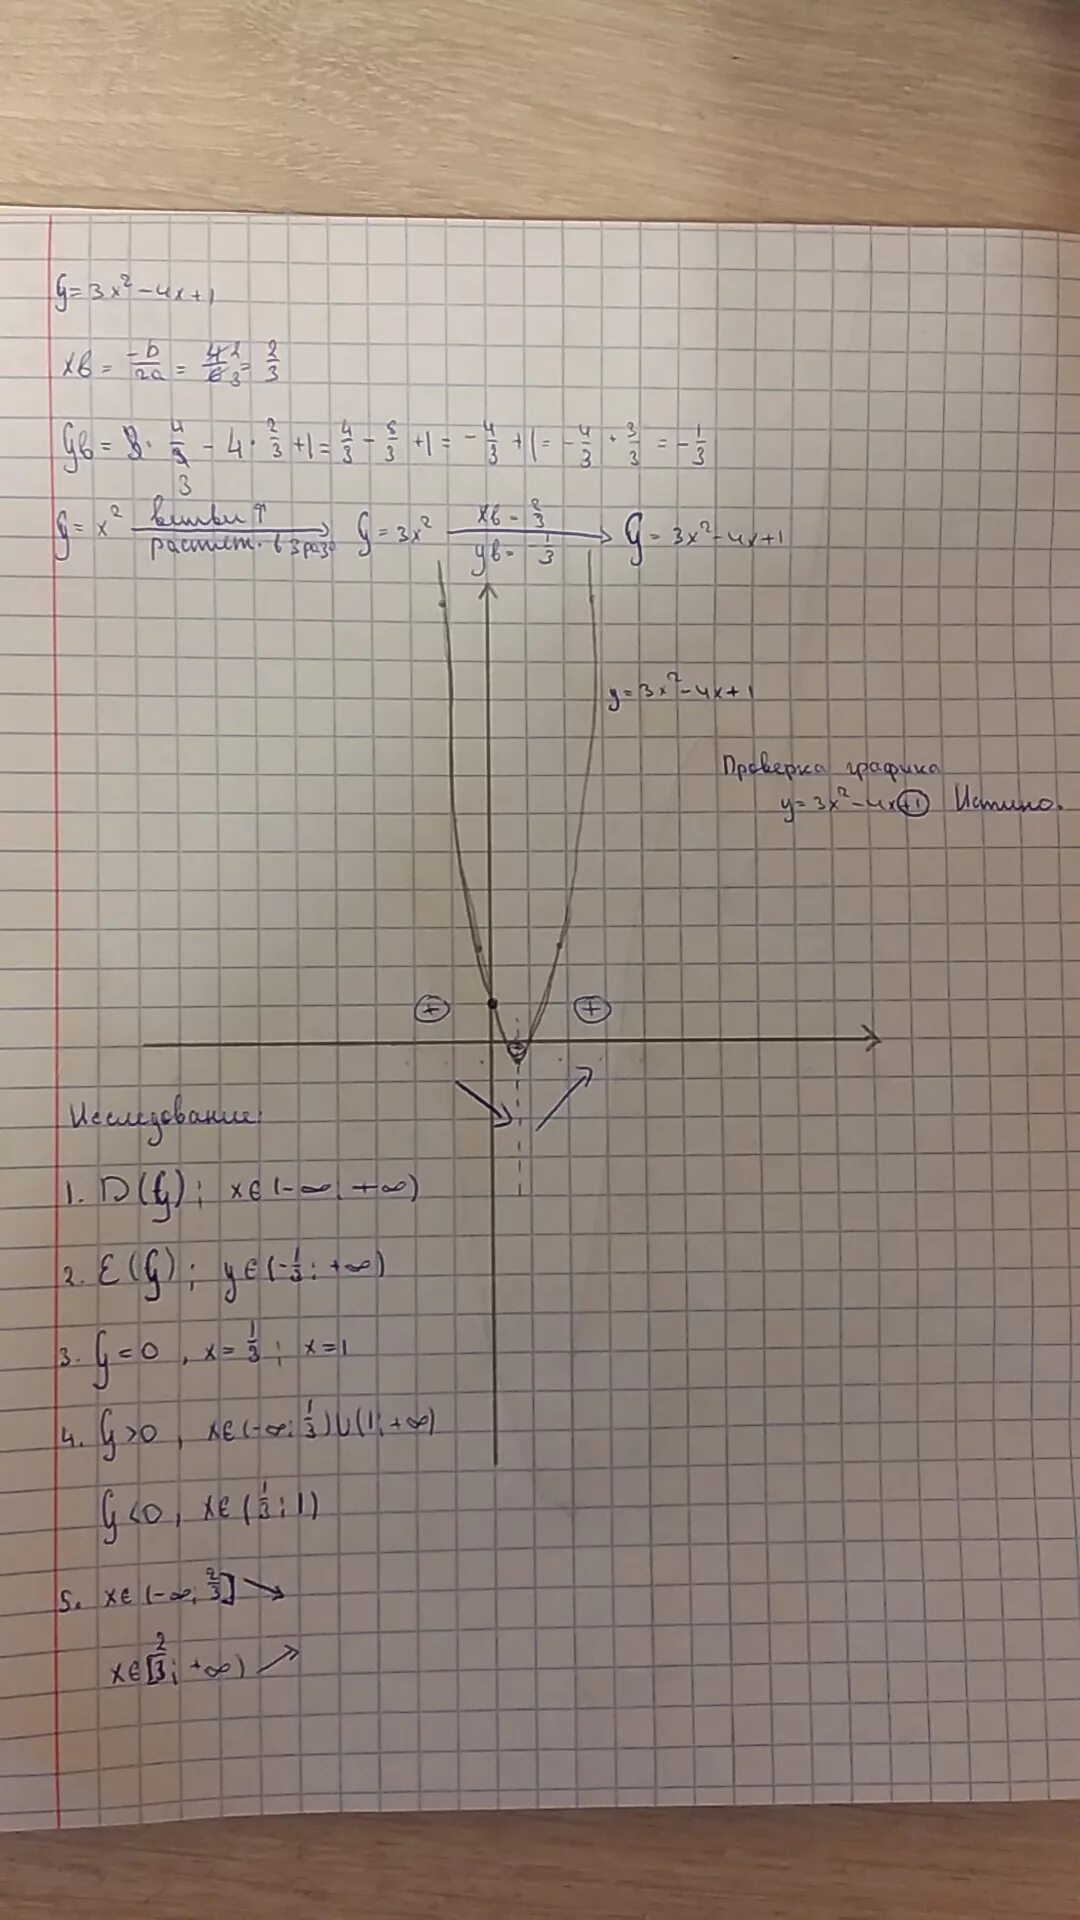 y = 3x² - 4x + 1
xв = -b/2a = 4/6 2/3 = 2/3
yв = 3 · 4/9 3 - 4 · 2/3 + 1 = 4/3 - 8/3 + 1 = -4/3 + 1 = -4/3 + 3/3 = -1/3
y = x² ветви ↑ растяж. в 3 раза → y = 3x² xв = 2/3 yв = -1/3 → y = 3x² - 4x + 1
y = 3x² - 4x + 1
Проверка графика
y = 3x² - 4x + 1 Истино.
+ + -
Исследование:
1. D(y); x∈(-∞; +∞)
2. E(y); y∈(-1/3; +∞)
3. y = 0, x = 1/3; x = 1
4. y > 0, x∈(-∞; 1/3)∪(1; +∞)
y < 0, x∈(1/3; 1)
5. x∈(-∞; 2/3] ↘
x∈[2/3; +∞) ↗